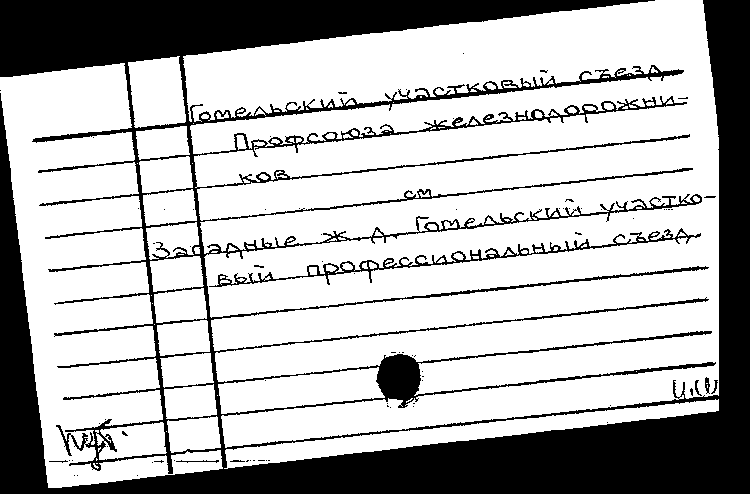 Гомельский участковый съезд
Профсоюза железнодорожни-
ков
см.
Западные ж. д. Гомельский участко-
вый профессиональный съезд